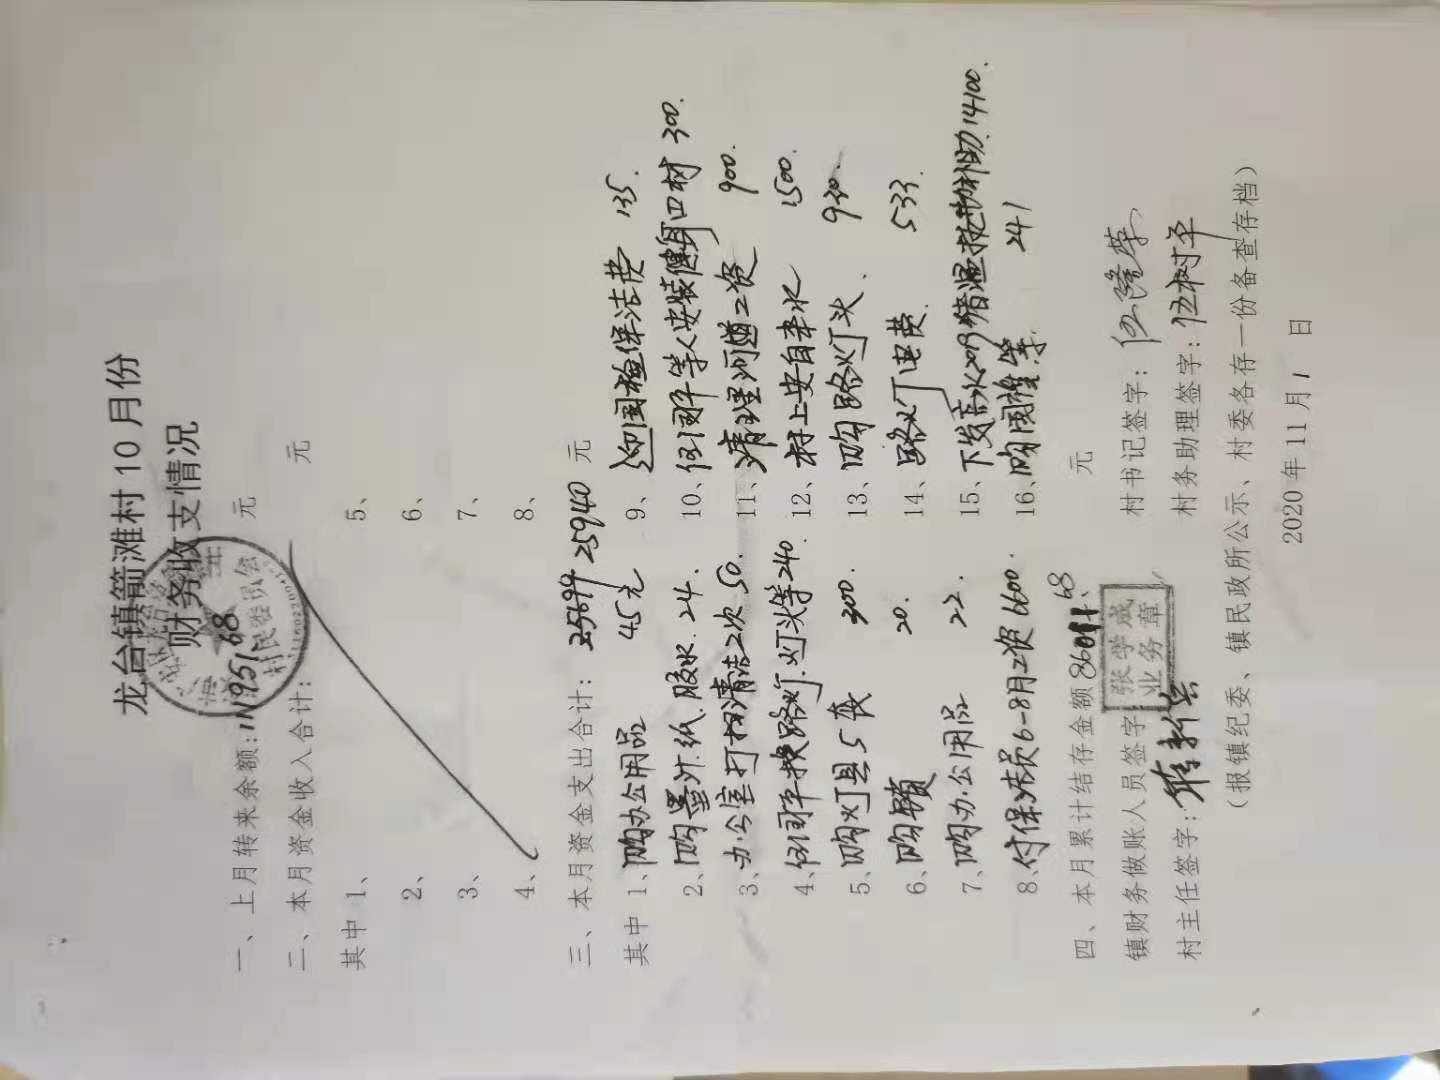 龙台镇箭滩村 10 月份
财务收支情况
一、上月转来余额:111951.68 元
二、本月资金收入合计: 元
其中 1、 5、
2、 6、
3、 7、
4、 8、
三、本月资金支出合计: 25699 25940 元
其中 1、购办公用品 45元 9、迎国检保洁费 135.
2、购墨汁.纸.胶水. 24. 10、伍国平等人安装健身四材 300.
3、办公室打扫清洁2次 50. 11、清理河道工资 900.
4、伍国平换路灯.灯头等240. 12、村上安自来水 1500.
5、购灯具5套 300. 13、购路灯头、 930.
6、购锁 20. 14、路灯电费. 533.
7、购办公用品 22. 15、下发 2019猪瘟 补助.14100.
8、付保洁员6-8月工资 6600. 16、购 等. 241
四、本月累计结存金额86011.68 元
镇财务做账人员签字 张学成 业务章 村书记签字: 伍隆华
村主任签字: 村务助理签字: 伍树平
（报镇纪委、镇民政所公示、村委各存一份备查存档）
2020 年 11 月 1 日
村民委员会